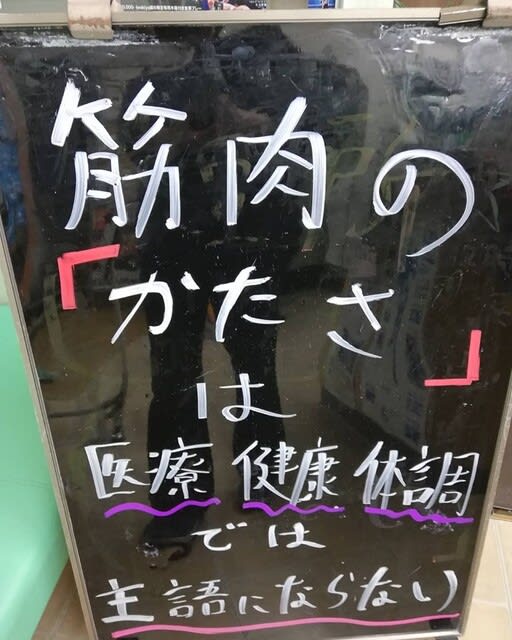 筋肉の
「かたさ」
は
医療 健康 体調
では
主語にならない